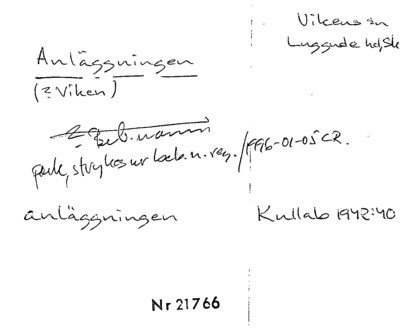 Vikens sn
Luggude hd, Sk
Anläggningen
(? Viken)
? Beb.namn
park, strykes ur beb.n.reg. 1996-01-05 CR.
anläggningen
Kullab 1942:40
Nr 21766